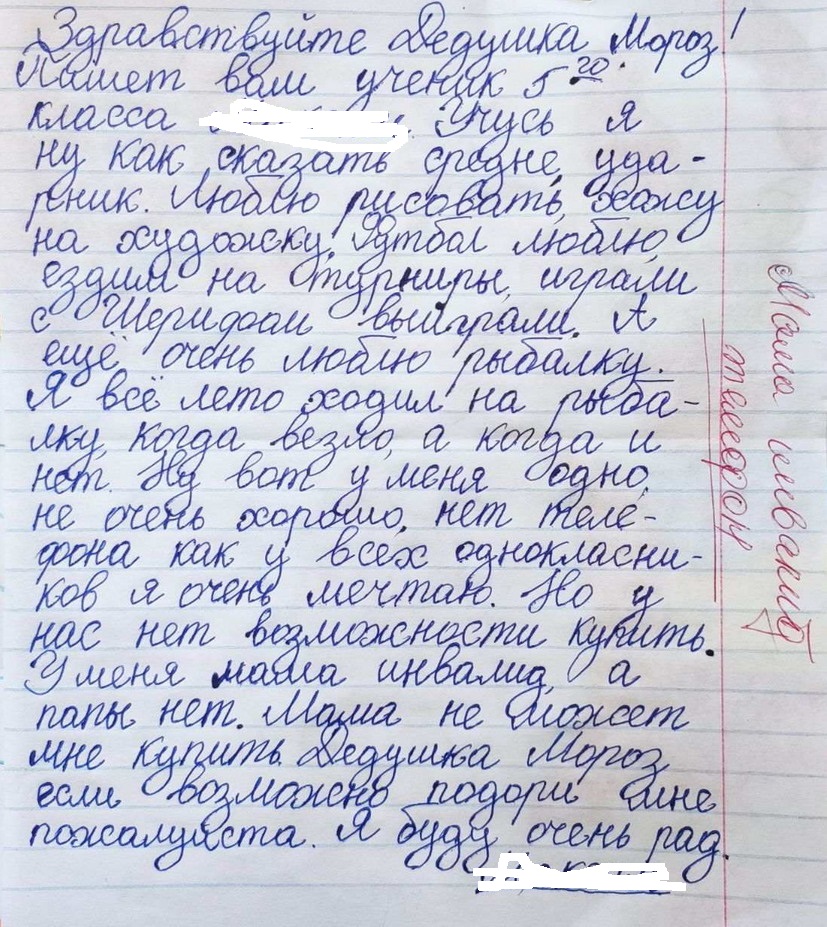 Здравствуйте Дедушка Мороз!
Пишет вам ученик 5го.
класса Учусь я
ну как сказать средне, уда-
рник. Люблю рисовать, хожу
на художку. Футбол люблю,
ездили на турниры, играли
с Шерифом выиграли. А
ещё очень люблю рыбалку.
Я всё лето ходил на рыба-
лку, когда везло, а когда и
нет. Ну вот у меня одно,
не очень хорошо, нет теле-
фона как у всех однокласни-
ков я очень мечтаю. Но у
нас нет возможности купить.
У меня мама инвалид, а
папы нет. Мама не может
мне купить. Дедушка Мороз
если возможно подари мне
пожалуйста. Я буду очень рад.
Мама инвалид
телефон